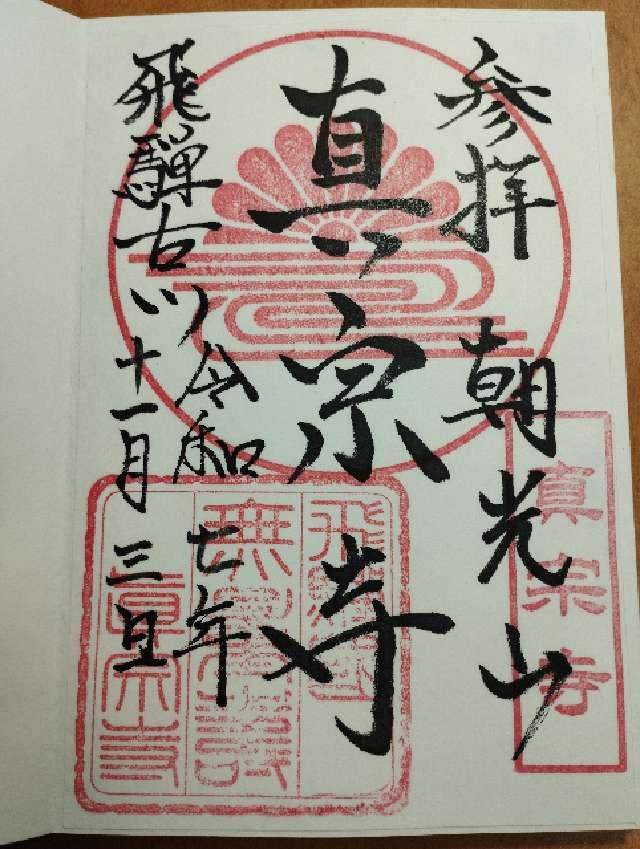 参拝
朝光山
真宗寺
真宗寺
飛騨古川
令和七年
十一月三日
真宗寺